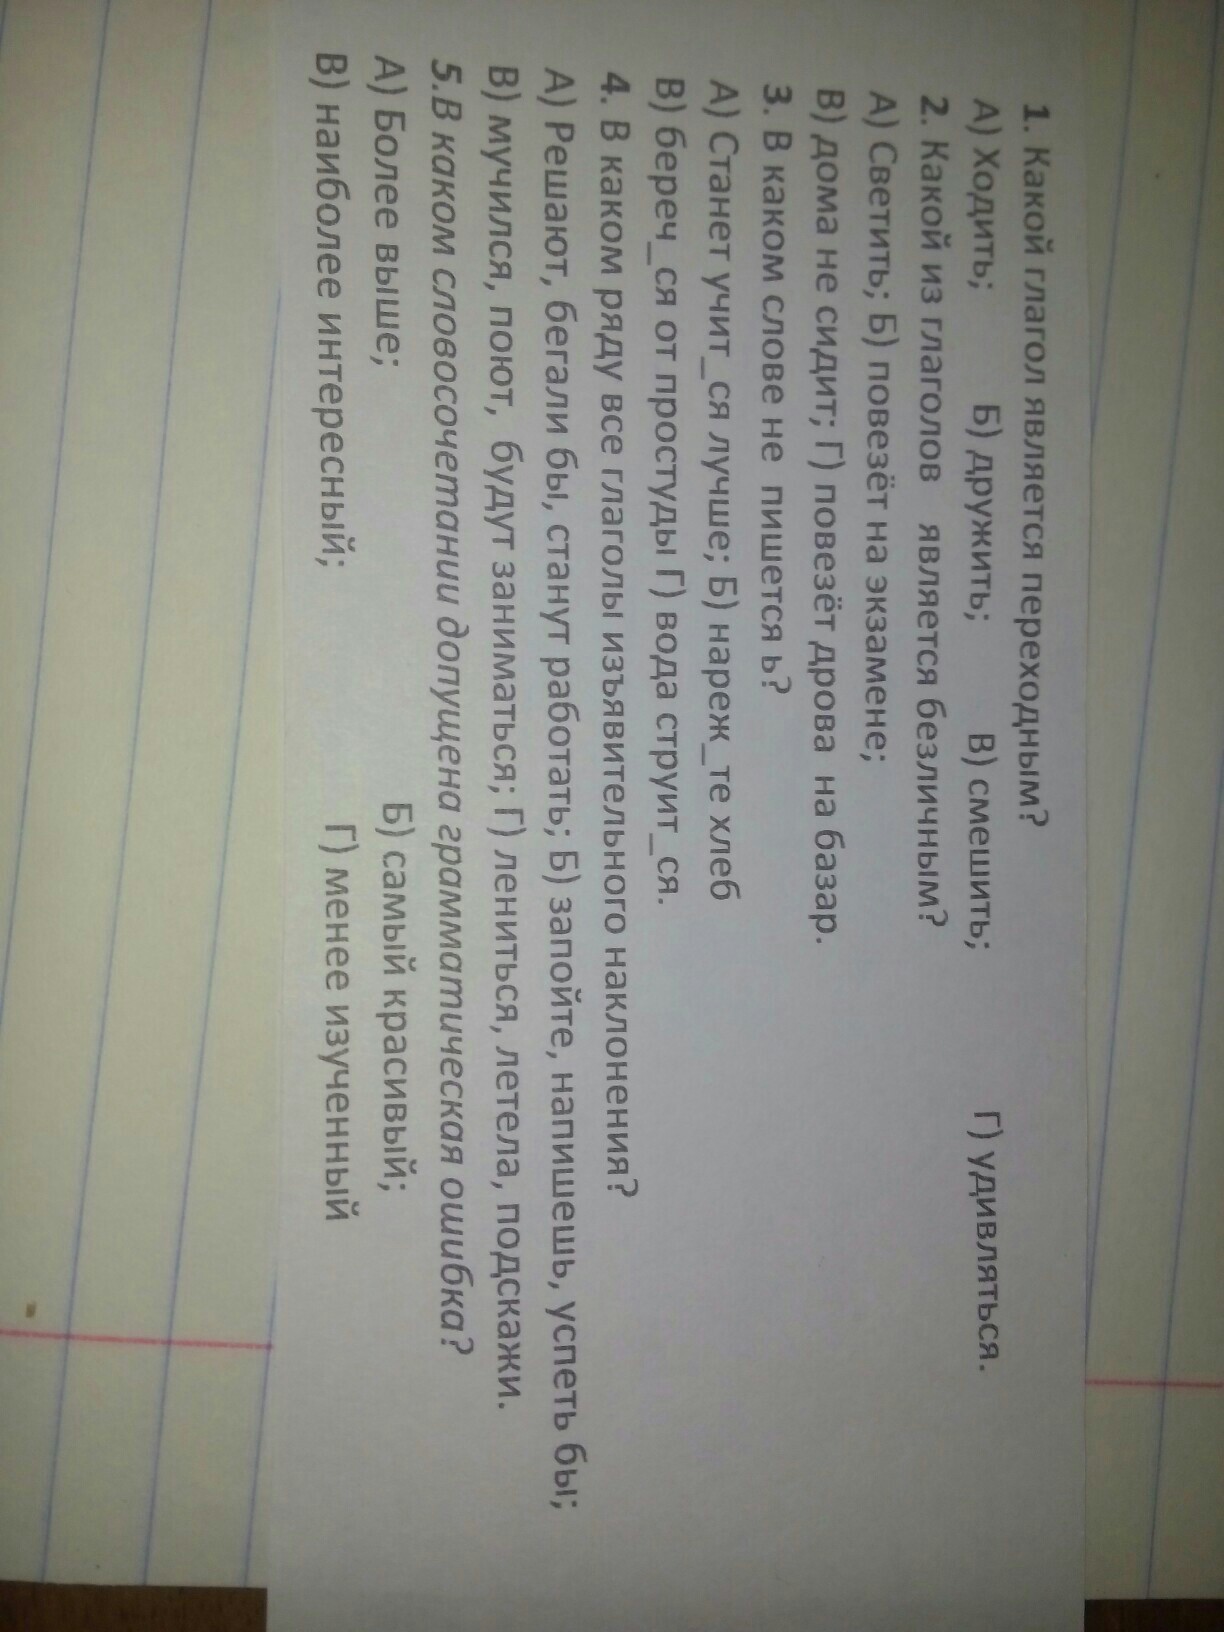 1. Какой глагол является переходным?
А) Ходить; Б) дружить; В) смешить; Г) удивляться.
2. Какой из глаголов является безличным?
А) Светить; Б) повезёт на экзамене;
В) дома не сидит; Г) повезёт дрова на базар.
3. В каком слове не пишется ь?
А) Станет учит_ся лучше; Б) нареж_те хлеб
В) береч_ся от простуды Г) вода струит_ся.
4. В каком ряду все глаголы изъявительного наклонения?
А) Решают, бегали бы, станут работать; Б) запойте, напишешь, успеть бы;
В) мучился, поют, будут заниматься; Г) лениться, летела, подскажи.
5.В каком словосочетании допущена грамматическая ошибка?
А) Более выше; Б) самый красивый;
В) наиболее интересный; Г) менее изученный